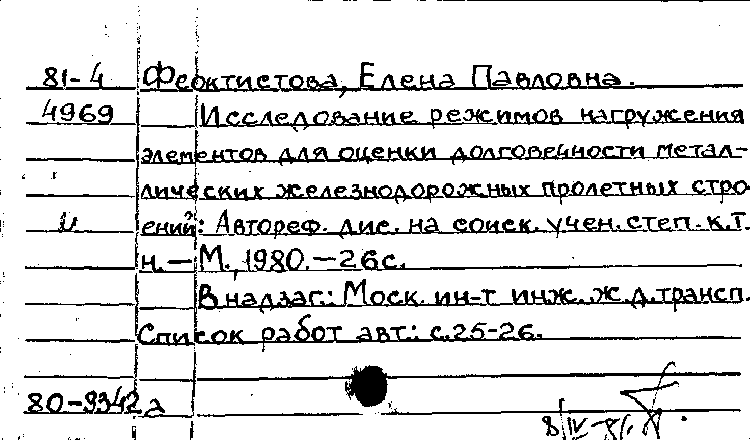 81-4 Феоктистова, Елена Павловна.
4969 Исследование режимов нагружения
элементов для оценки долговечности метал-
лических железнодорожных пролетных стро
и ений: Автореф. дис. на соиск. учен. степ. к.т.
н. — М., 1980. — 26с.
В надзаг.: Моск. ин-т инж. ж.д. трансп.
Список работ авт.: с.25-26.
80-9342а
8/IV-81.